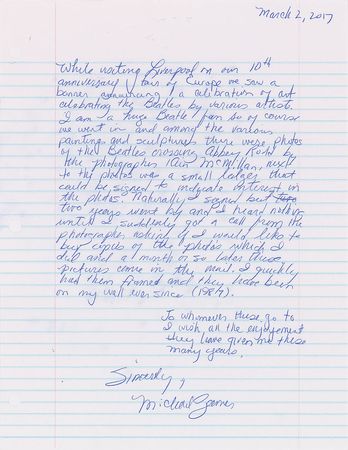 March 2, 2017
While visiting Liverpool on our 10th
anniversary tour of Europe we saw a
banner announcing a celebration of art
celebrating the Beatles by various artists.
I am a huge Beatle fan so of course
we went in and among the various
paintings and sculptures there were photos
of the Beatles crossing Abbey Road by
the photographer Iain McMillan, next
to the photos was a small ledger that
could be signed to indicate interest in
the photos. Naturally I signed but
two years went by and I heard nothing
until I suddenly got a call from the
photographer asking if I would like to
buy copies of the photos which I
did and a month or so later these
pictures came in the mail. I quickly
had them framed and they have been
on my wall ever since (1989).
To whomever these go to
I wish all the enjoyment
they have given me these
many years.
Sincerely,
Michael